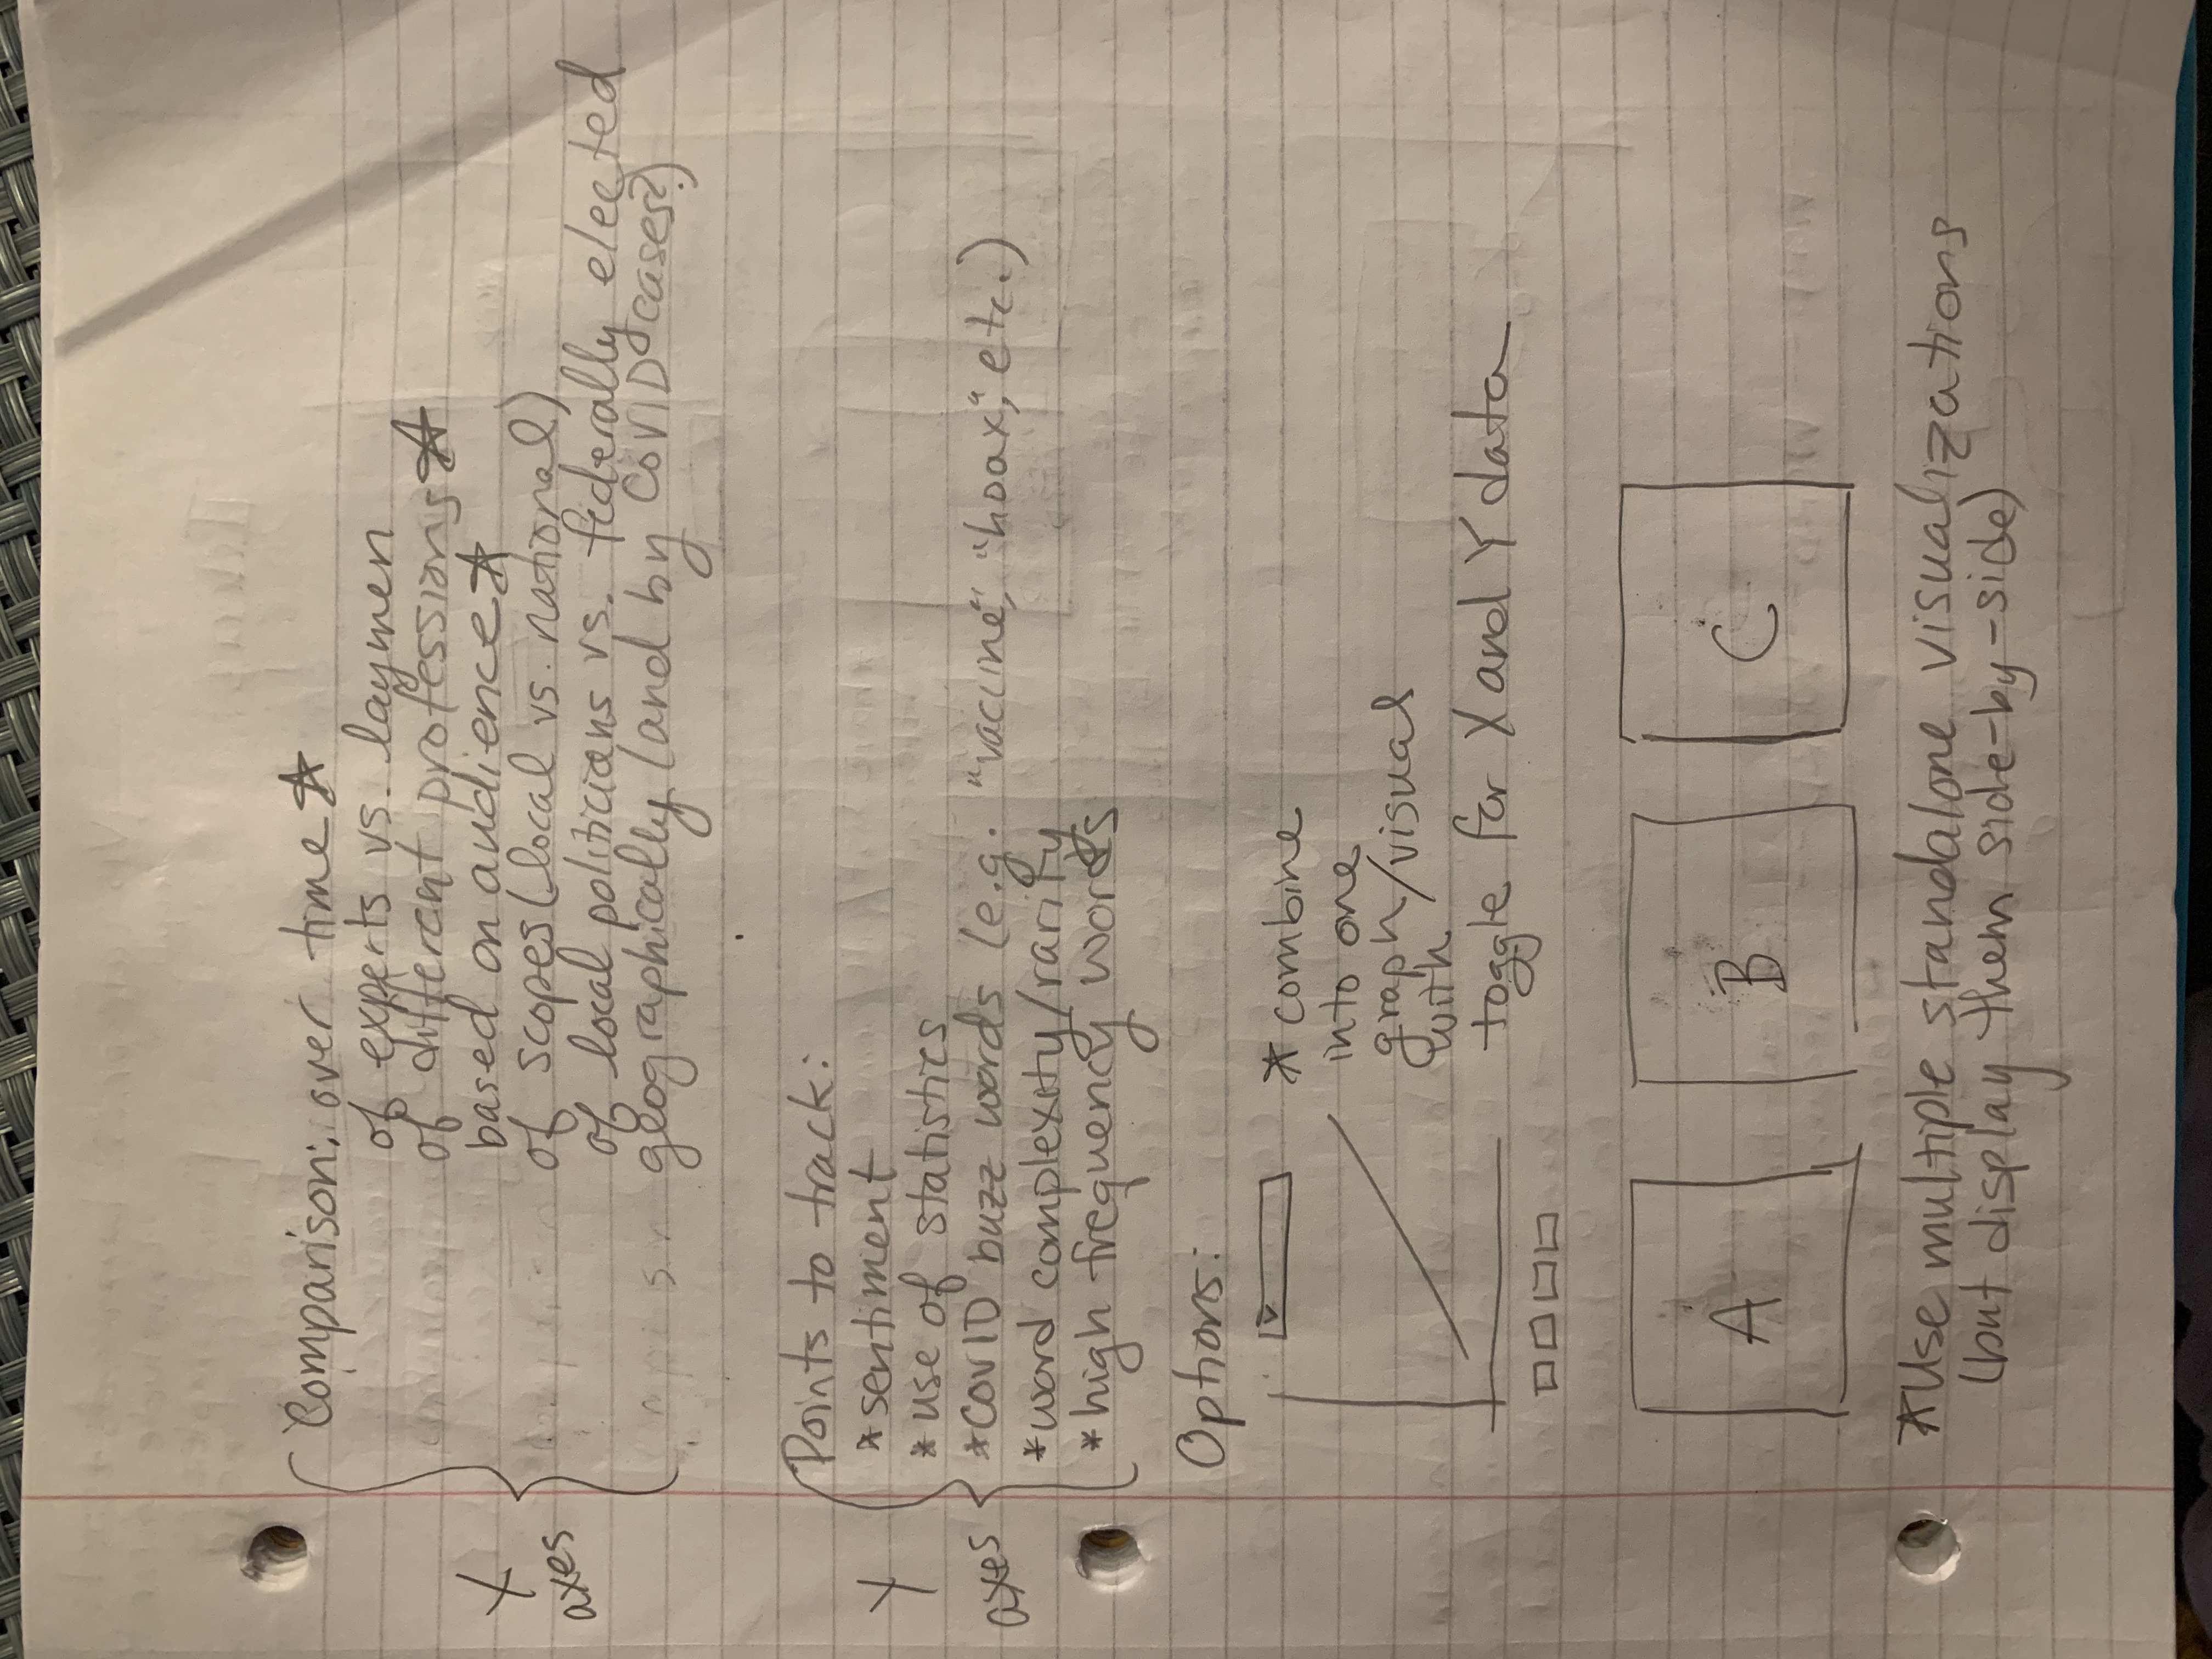 Comparison: over time ☆
of experts vs. laymen
of different professions ☆
based on audience ☆
of scopes (local vs. national)
of local politicians vs. federally elected
geographically (and by COVID cases?)
X
axes
Points to track:
*sentiment
*use of statistics
*COVID buzz words (e.g. "vaccine", "hoax", etc.)
*word complexity/rarity
*high frequency words
Y
axes
Options:
*combine
into one
graph/visual
with
toggle for X and Y data
A B C
*Use multiple standalone visualizations
(but display them side-by-side)